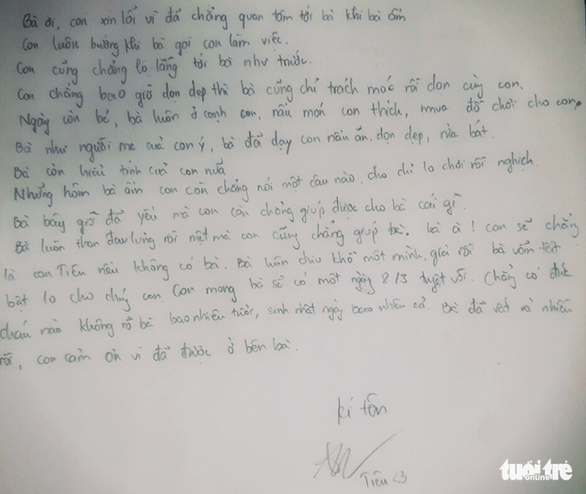 Bà ơi, con xin lỗi vì đã chẳng quan tâm tới bà khi bà ốm
Con luôn bướng khi bà gọi con làm việc.
Con cũng chẳng lo lắng tới bà như trước.
Con chẳng bao giờ dọn dẹp thì bà cũng chỉ trách móc rồi dọn cùng con.
Ngày còn bé, bà luôn ở cạnh con, nấu món con thích, mua đồ chơi cho con,
Bà như người mẹ của con ý, bà đã dạy con nấu ăn, dọn dẹp, rửa bát.
Bà còn hiểu tính của con nữa
Những hôm bà ốm con còn chẳng nói một câu nào, cho chỉ lo chơi rồi nghịch.
Bà bây giờ đã yếu mà con còn chẳng giúp được cho bà cái gì.
Bà luôn than đau lưng rồi mệt mà con cũng chẳng giúp bà. bà à! con sẽ chẳng
là con Tiên nếu không có bà. Bà luôn chịu khổ một mình, già rồi bà vẫn tất
bật lo cho chúng con. Con mong bà sẽ có một ngày 8/3 tuyệt vời. Chẳng có đứa
cháu nào không rõ bà bao nhiêu tuổi, sinh nhật ngày bao nhiêu cả. Bà đã vất vả nhiều
rồi, con cảm ơn vì đã được ở bên bà.
kí tên
Tiên <3
tuổi trẻ
online